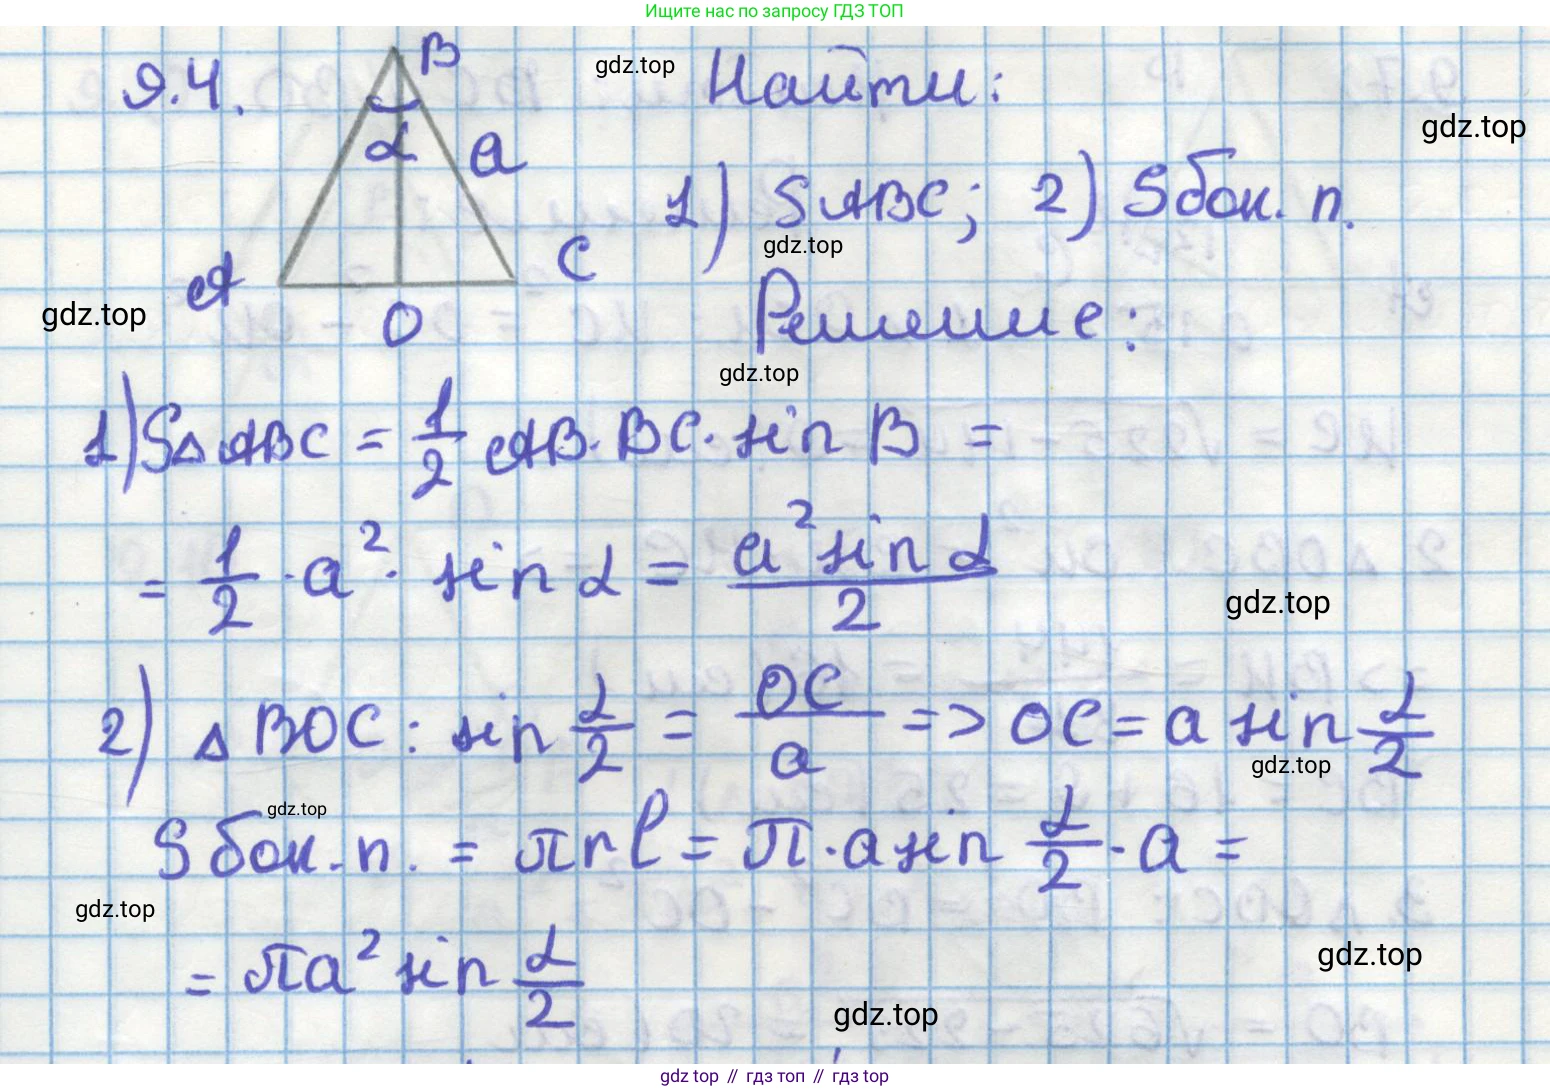 Ищите нас по запросу ГДЗ ТОП
9.4.
B
gdz.top
Найти:
α
a
gdz.top
1) SABC; 2) Sбок. п.
gdz.top
A
C
gdz.top
O
Решение:
gdz.top
1) S△ABC = 1/2 AB · BC · sin B =
= 1/2 · a² · sin α = a² sin α / 2
gdz.top
2) △ BOC: sin α/2 = OC/a => OC = a sin α/2
gdz.top
gdz.top
Sбок. п. = πrl = π · a sin α/2 · a =
gdz.top
= πa² sin α/2
gdz.top
gdz.top
gdz top // гдз топ // гдз top